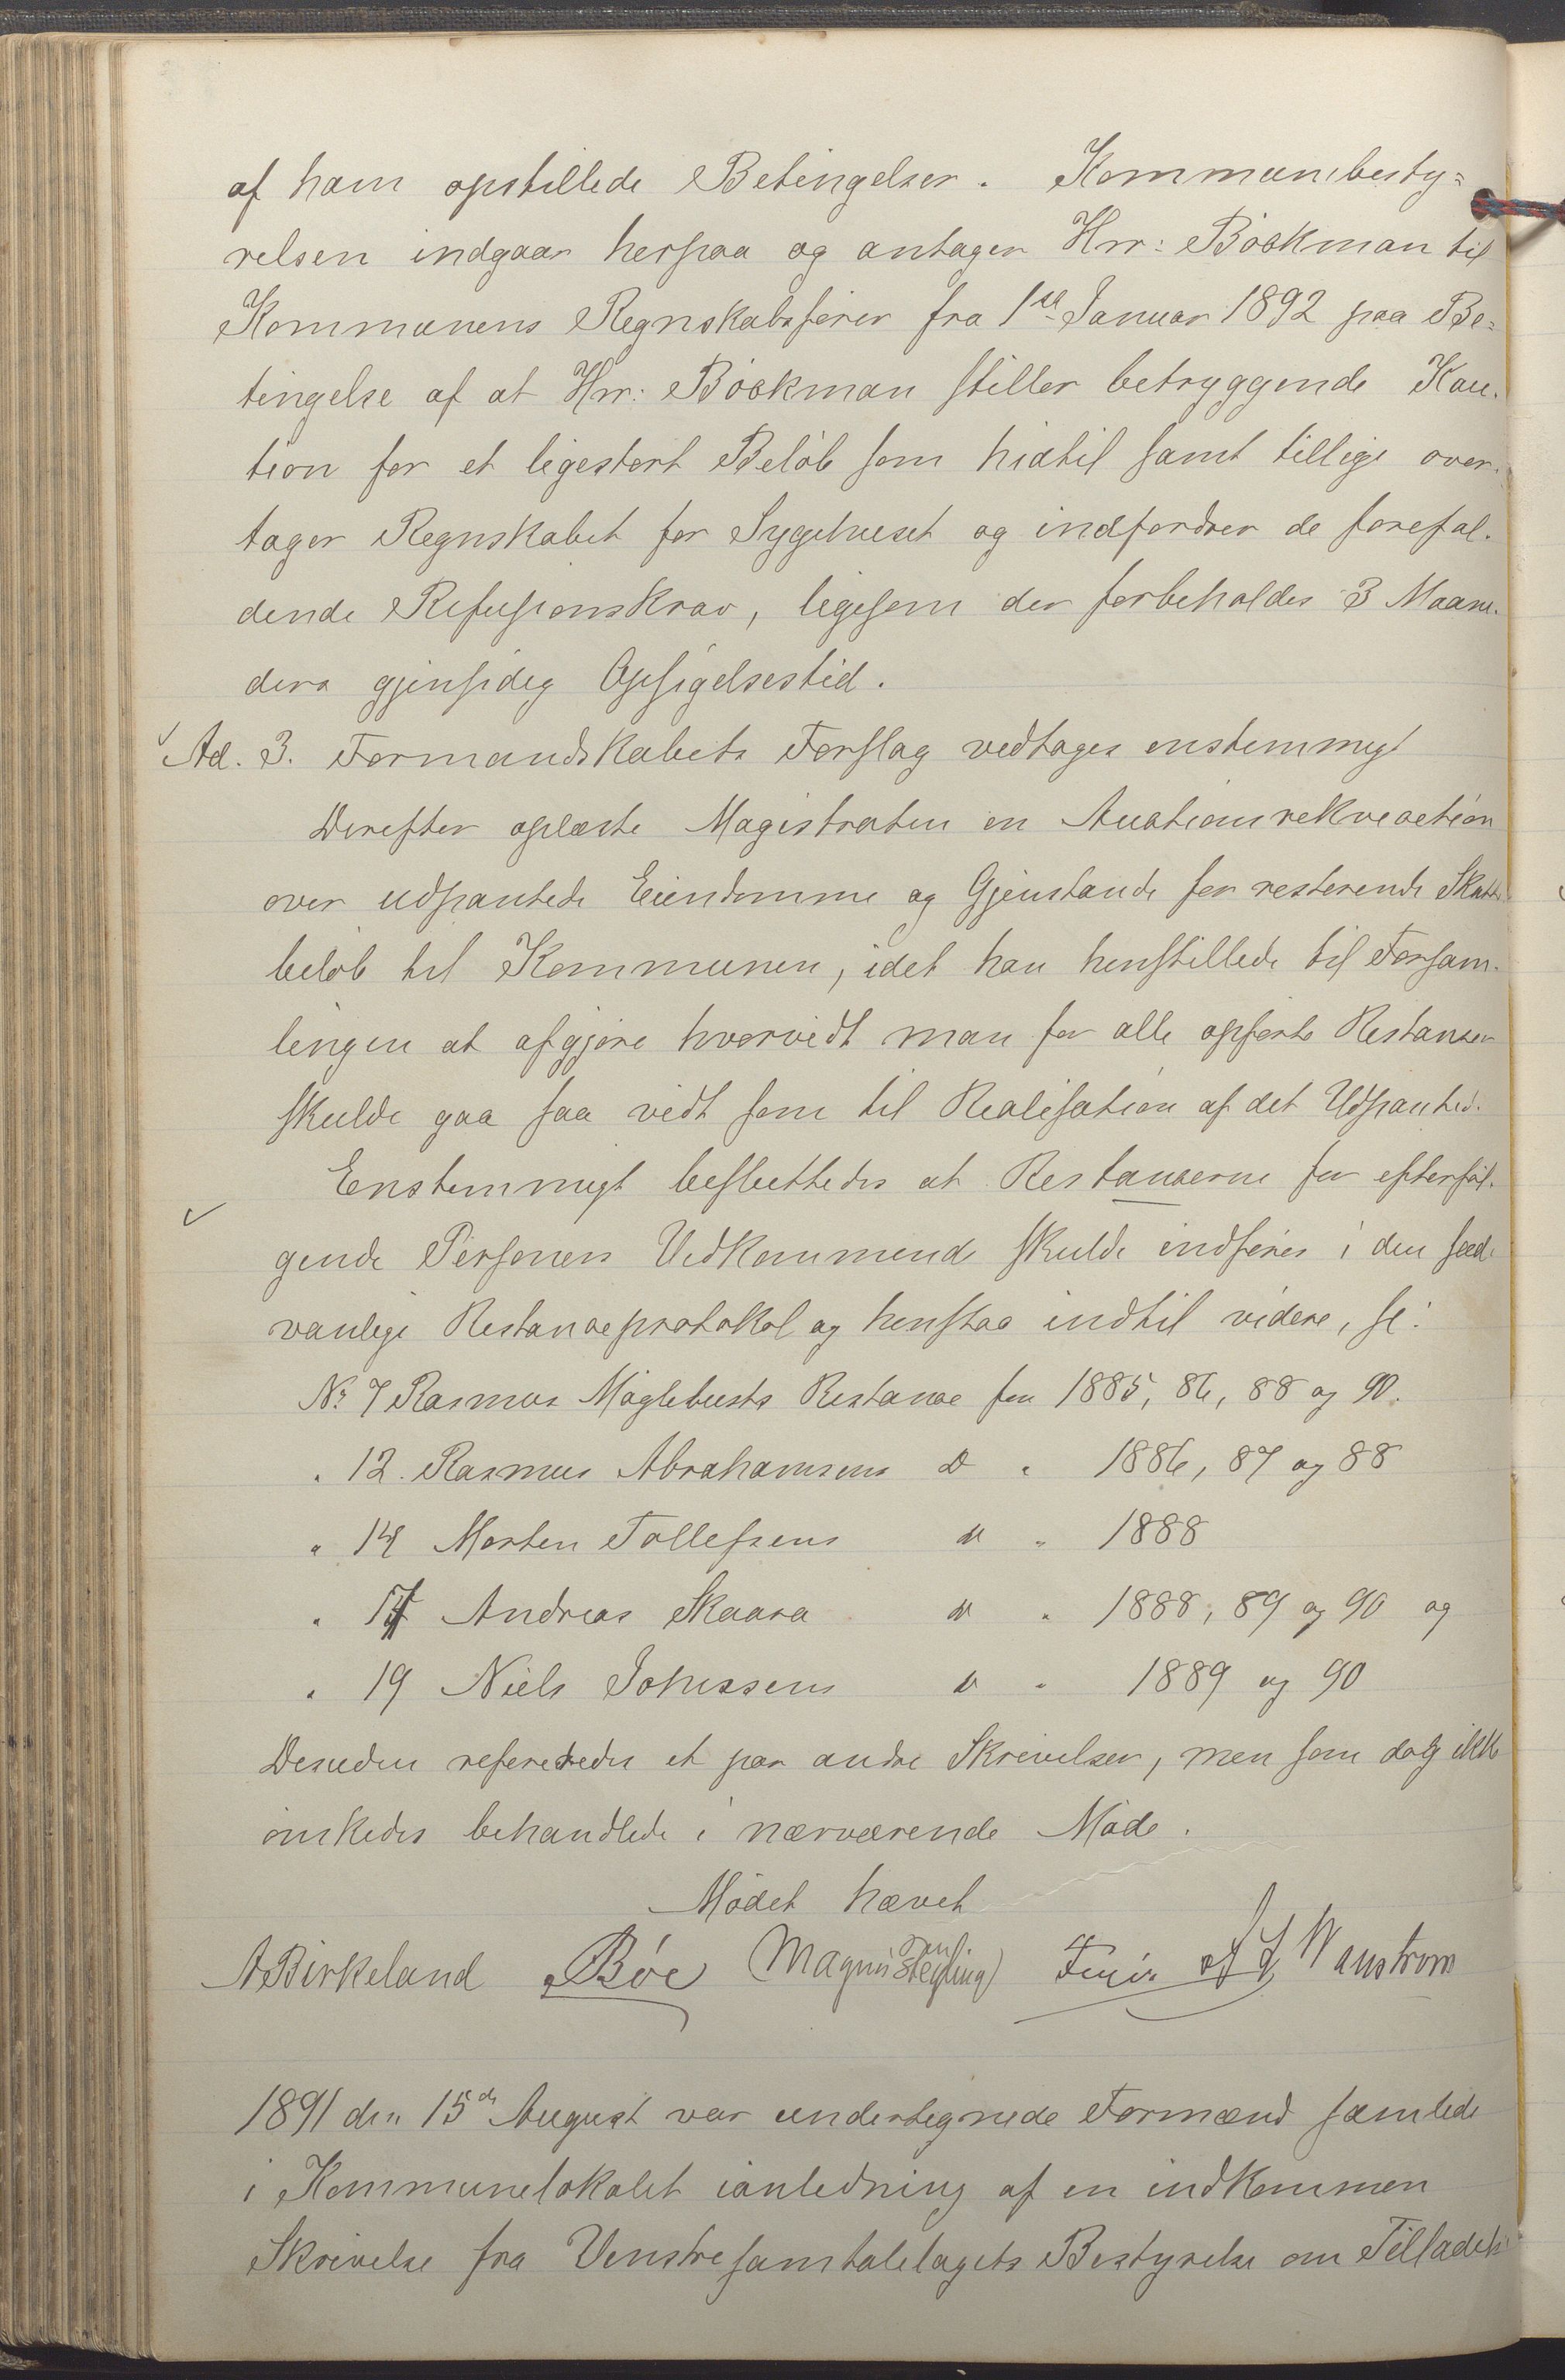 af ham opstillede Betingelser. Kommunebesty=
relsen indgaar herpaa og antager Hrr: Böckman til
Kommunens Regnskabsfører fra 1ste Januar 1892 paa Be=
tingelse af at Hrr: Böckman stiller betryggende Kau-
tion for et ligestort Beløb som hidtil samt tillige over-
tager Regnskabet for Sygehuset og indfordrer de forefal-
dende Refusionskrav, ligesom der forbeholdes 3 Maane-
ders gjensidig Opsigelsestid.
Ad. 3. Formandskabets Forslag vedtages enstemmigt
Derefter oplæste Magistraten en Auctionsrekvisition
over udpantede Eiendomme og Gjenstande for resterende Skatte
beløb til Kommunen, idet han henstillede til Forsam-
lingen at afgjøre hvorvidt man for alle opførte Restancer
skulde gaa saa vidt som til Realisation af det Udpantede.
Enstemmigt besluttedes at Restancerne for efterføl-
gende Personers Vedkommende skulde indføres i den sæd-
vanlige Restanceprotokol og henstaa indtil videre, se:
No 7 Rasmus Møglebusts Restance for 1885, 86, 88 og 90.
" 12. Rasmus Abrahamsens Do " 1886, 87 og 88
" 14 Morten Tollefsens " " 1888
" 17 Andreas Skaara " " 1888, 89 og 90 og
" 19 Niels Johnssens " " 1889 og 90
Desuden refereredes et par andre Skrivelser, men som dog ikke
ønskedes behandlede i nærværende Møde.
Mødet hævet
A Birkeland Böe Magnus Stegling Wanstrom
1891 den 15de August var undertegnede Formænd samlede
i Kommunelokalet ianledning af en indkommen
Skrivelse fra Venstresamtalelagets Bestyrelse om Tilladels